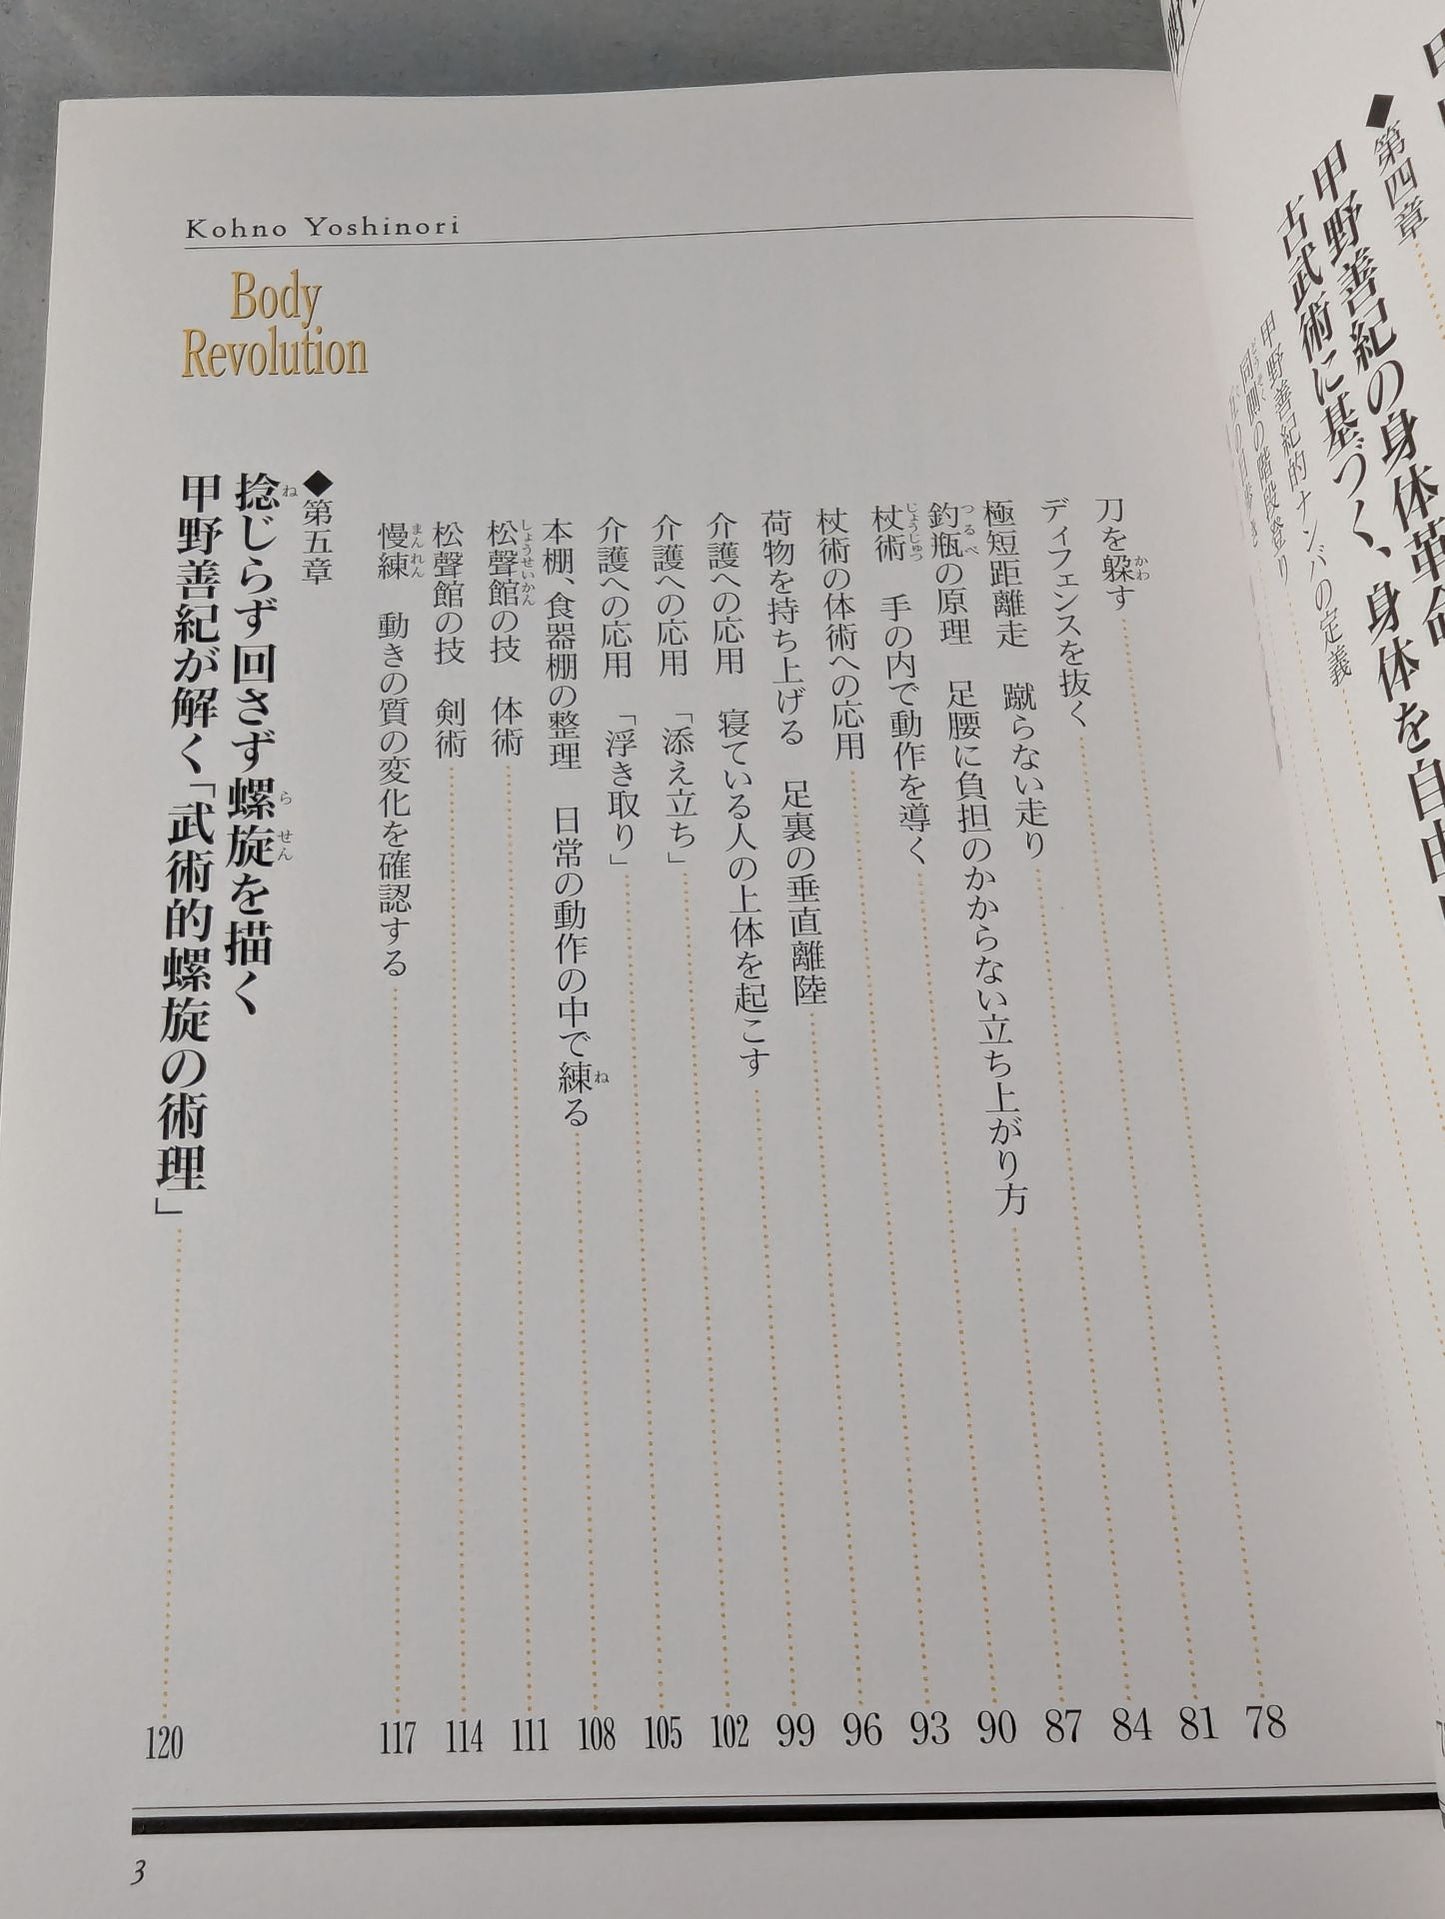 ◆第四章
甲野善紀の身体革命
古武術に基づく、身体を自由
甲野善紀的ナンバの定義
同側の階段登り
Kohno Yoshinori
Body
Revolution
刀を躱す 78
ディフェンスを抜く 81
極短距離走 蹴らない走り 84
釣瓶の原理 足腰に負担のかからない立ち上がり方 87
杖術 手の内で動作を導く 90
杖術の体術への応用 93
荷物を持ち上げる 足裏の垂直離陸 96
介護への応用 寝ている人の上体を起こす 99
介護への応用 「添え立ち」 102
介護への応用 「浮き取り」 105
本棚、食器棚の整理 日常の動作の中で練る 108
松聲館の技 体術 111
松聲館の技 剣術 114
慢練 動きの質の変化を確認する 117
◆第五章
捻じらず回さず螺旋を描く
甲野善紀が解く「武術的螺旋の術理」 120
3